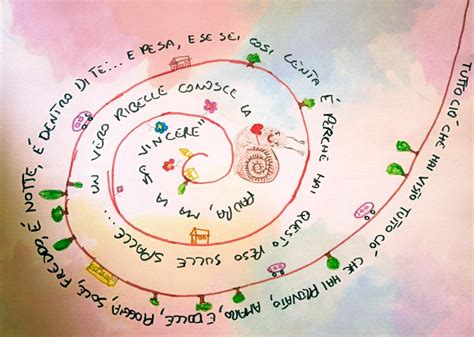 TUTTO CIO' CHE HAI VISTO TUTTO CIO' CHE HAI PROVATO, AMARO, È DOLCE, PIOGGIA, SOLE, FREDDO, È NOTTE, È DENTRO DI TE:... E PESA, E SE SEI COSI LENTA È PERCHÈ HAI QUESTO PESO SULLE SPALLE... UN VERO RIBELLE CONOSCE LA PAURA, MA LA SA VINCERE"